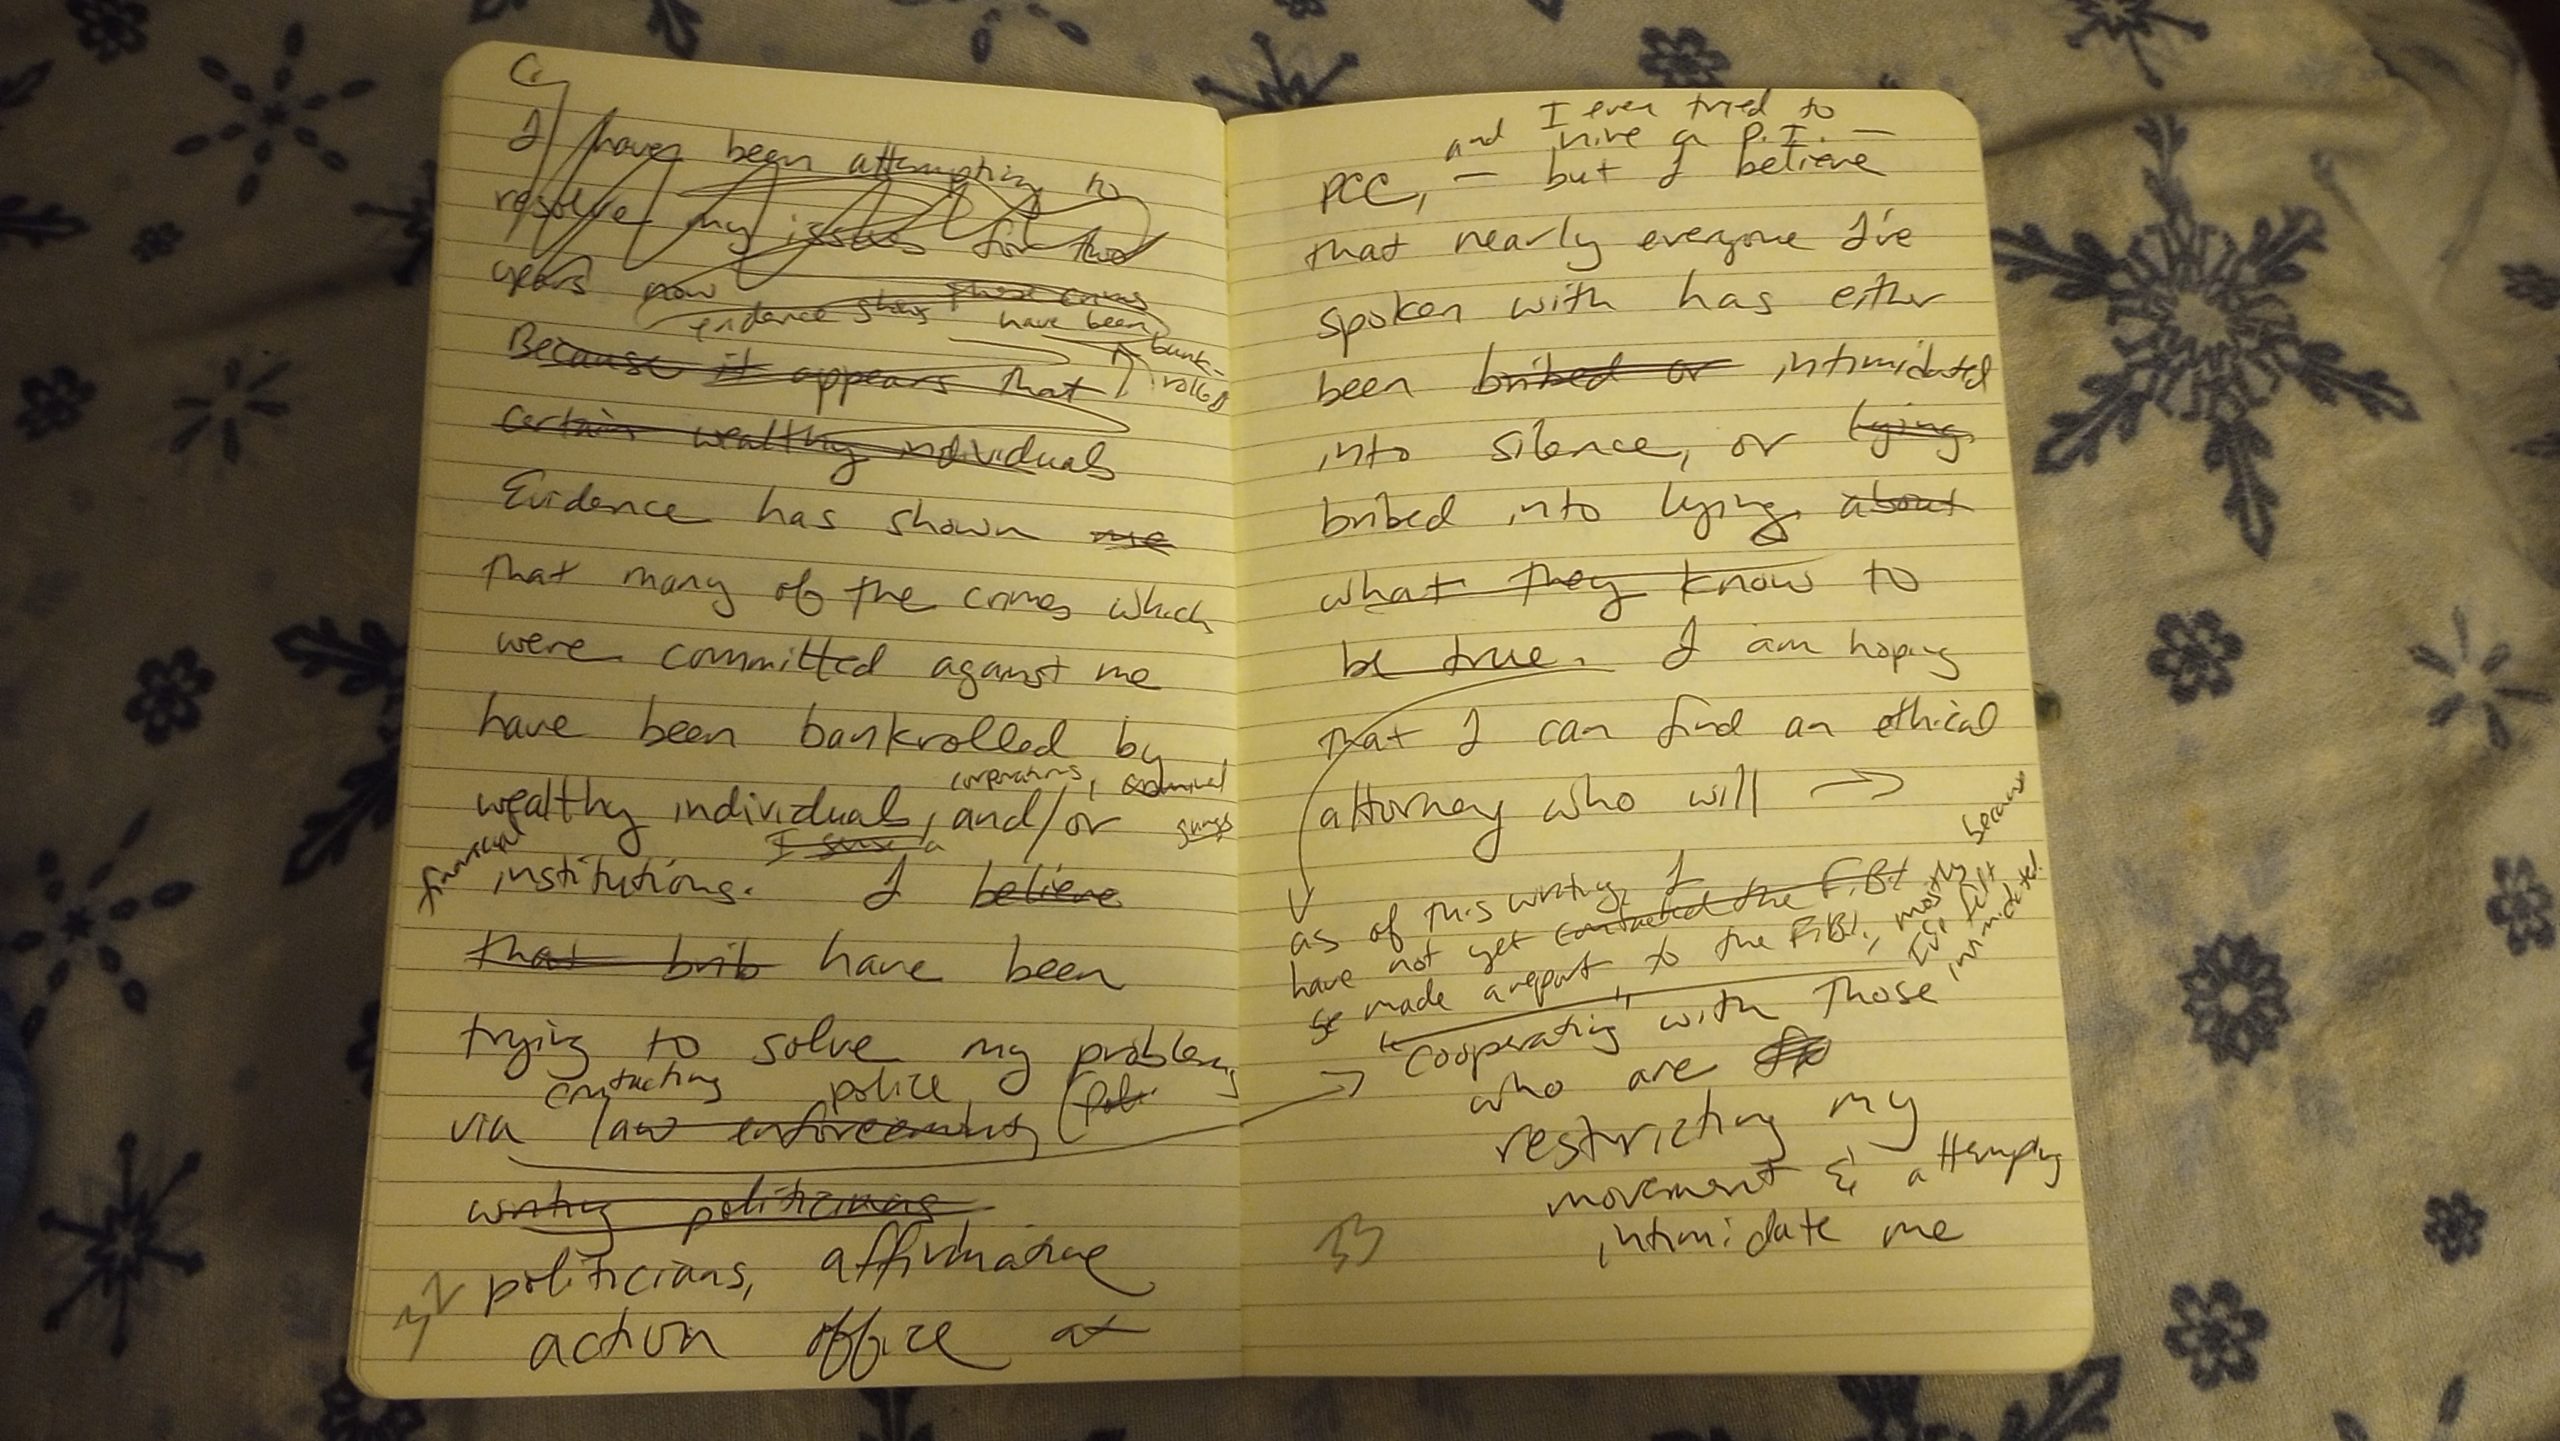 I have been attempting to
resolve my issues for two
years now
these crimes
evidence shows have been
bank-
rolled
Because it appears that
certain wealthy individuals
Evidence has shown me
that many of the crimes which
were committed against me
have been bankrolled by
corporations, criminal
wealthy individuals, and/or gangs
I
financial institutions. I believe
that brib have been
trying to solve my problems
contacting police,
via law enforcement, (poli
writing politicians
politicians, affirmative
32
action office at
and I even tried to
hire a P.I. —
PCC, — but I believe
that nearly everyone I've
spoken with has either
been bribed or intimidated
into silence, or lying
bribed into lying. about
what they know to
be true. I am hoping
that I can find an ethical
attorney who will →
as of this writing, I
have not yet contacted the F.B.I
made a report, to the F.B.I., mostly because
I've felt
intimidated
"cooperating" with those
who are
restricting my
movement & attempting
intimidate me
33